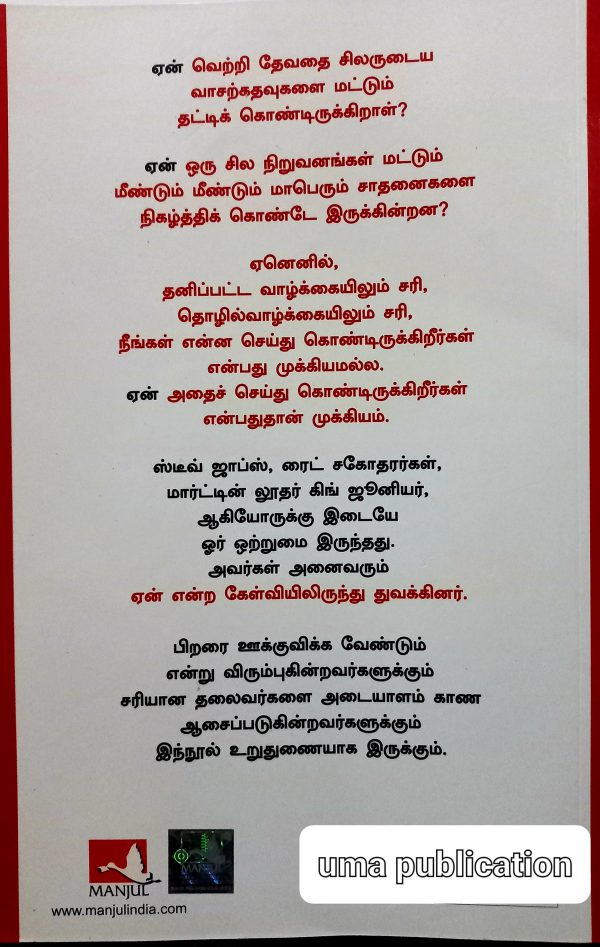 ஏன் வெற்றி தேவதை சிலருடைய
வாசற்கதவுகளை மட்டும்
தட்டிக் கொண்டிருக்கிறாள்?
ஏன் ஒரு சில நிறுவனங்கள் மட்டும்
மீண்டும் மீண்டும் மாபெரும் சாதனைகளை
நிகழ்த்திக் கொண்டே இருக்கின்றன?
ஏனெனில்,
தனிப்பட்ட வாழ்க்கையிலும் சரி,
தொழில்வாழ்க்கையிலும் சரி,
நீங்கள் என்ன செய்து கொண்டிருக்கிறீர்கள்
என்பது முக்கியமல்ல.
ஏன் அதைச் செய்து கொண்டிருக்கிறீர்கள்
என்பதுதான் முக்கியம்.
ஸ்டீவ் ஜாப்ஸ், ரைட் சகோதரர்கள்,
மார்ட்டின் லூதர் கிங் ஜூனியர்,
ஆகியோருக்கு இடையே
ஓர் ஒற்றுமை இருந்தது.
அவர்கள் அனைவரும்
ஏன் என்ற கேள்வியிலிருந்து துவக்கினர்.
பிறரை ஊக்குவிக்க வேண்டும்
என்று விரும்புகின்றவர்களுக்கும்
சரியான தலைவர்களை அடையாளம் காண
ஆசைப்படுகின்றவர்களுக்கும்
இந்நூல் உறுதுணையாக இருக்கும்.
MANJUL
www.manjulindia.com
uma publication